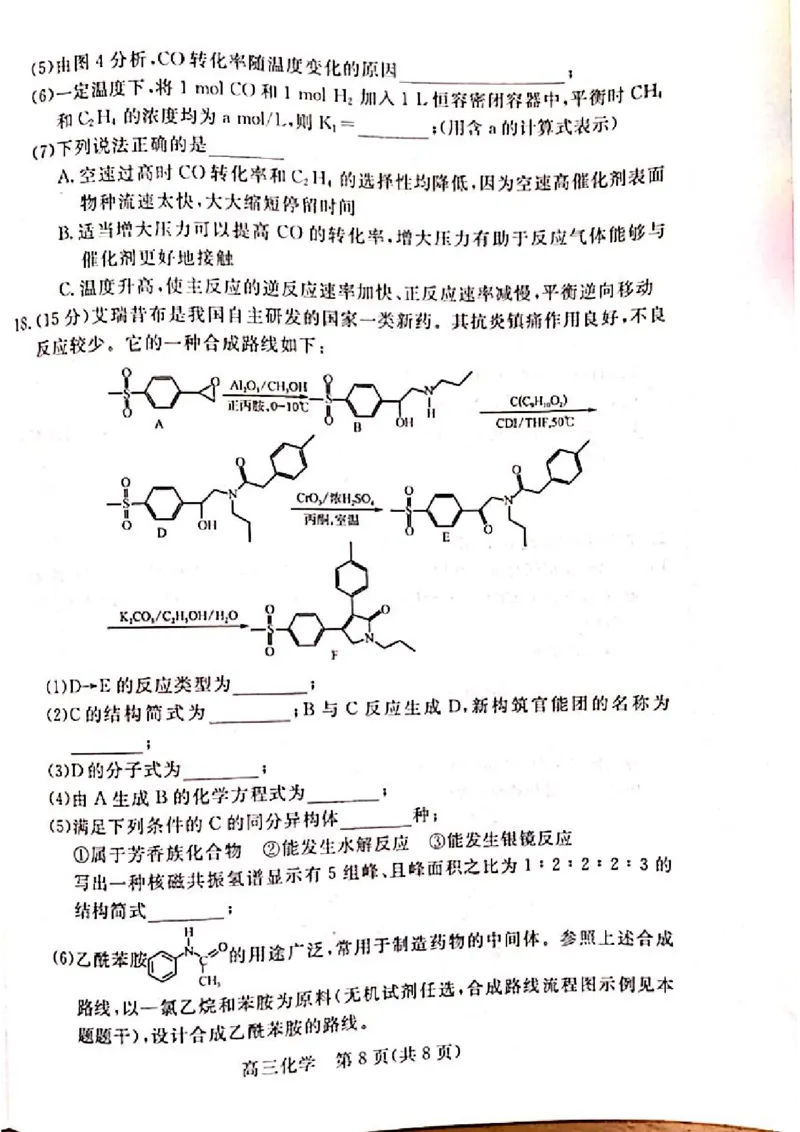 (5)由图4分析,CO转化率随温度变化的原因________;
(6)一定温度下,将1 mol CO和1 mol H₂加入1 L恒容密闭容器中,平衡时CH₄
和C₂H₄的浓度均为a mol/L,则K₁=________;(用含a的计算式表示)
(7)下列说法正确的是________
A.空速过高时CO转化率和C₂H₄的选择性均降低,因为空速高催化剂表面
物种流速太快,大大缩短停留时间
B.适当增大压力可以提高CO的转化率,增大压力有助于反应气体能够与
催化剂更好地接触
C.温度升高,使主反应的逆反应速率加快、正反应速率减慢,平衡逆向移动
18.(15分)艾瑞昔布是我国自主研发的国家一类新药。其抗炎镇痛作用良好,不良
反应较少。它的一种合成路线如下:
O S O O A
Al₂O₃/CH₃OH
正丙胺,0~10℃
O S O OH N H B
C(C₉H₁₀O₂)
CDI/THF,50℃
O S O OH N O D
CrO₃/浓H₂SO₄
丙酮,室温
O S O O N O E
K₂CO₃/C₂H₅OH/H₂O
O S O N O F
(1)D→E的反应类型为________;
(2)C的结构简式为________;B与C反应生成D,新构筑官能团的名称为
________;
(3)D的分子式为________;
(4)由A生成B的化学方程式为________;
(5)满足下列条件的C的同分异构体________种;
①属于芳香族化合物 ②能发生水解反应 ③能发生银镜反应
写出一种核磁共振氢谱显示有5组峰、且峰面积之比为1:2:2:2:3的
结构简式________;
(6)乙酰苯胺 H N C O CH₃ 的用途广泛,常用于制造药物的中间体。参照上述合成
路线,以一氯乙烷和苯胺为原料(无机试剂任选,合成路线流程图示例见本
题题干),设计合成乙酰苯胺的路线。
高三化学 第8页(共8页)